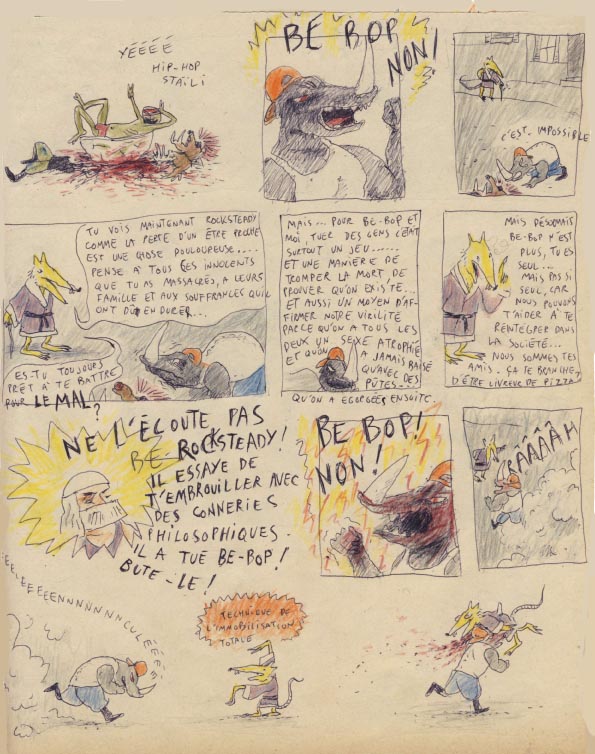 YÉÉÉÉ
HIP-HOP
STAÏLI
BE BOP
NON!
C'EST IMPOSSIBLE
TU VOIS MAINTENANT ROCKSTEADY
COMME LA PERTE D'UN ÊTRE PROCHE
EST UNE CHOSE DOULOUREUSE.....
PENSE À TOUS CES INNOCENTS
QUE TU AS MASSACRÉS, A LEURS
FAMILLE ET AUX SOUFFRANCES QU'IL
ONT DÛ ENDURER...
ES-TU TOUJOURS
PRÊT A TE BATTRE
POUR LE MAL?
MAIS... POUR BE-BOP ET
MOI, TUER DES GENS C'ÉTAIT
SURTOUT UN JEU......
ET UNE MANIÈRE DE
TROMPER LA MORT, DE
PROUVER QU'ON EXISTE...
ET AUSSI UN MOYEN D'AF-
FIRMER NOTRE VIRILITÉ
PARCE QU'ON A TOUS LES
DEUX UN SEXE ATROPHIÉ
ET QU'ON A JAMAIS BAISÉ
QU'AVEC DES
PÛTES...
QU'ON A EGORGÉES ENSUITE.
MAIS DÉSORMAIS
BE-BOP N'EST
PLUS, TU ES
SEUL...
MAIS PAS SI
SEUL, CAR
NOUS POUVONS
T'AIDER A TE
RÉINTEGRER DANS
LA SOCIÉTÉ...
NOUS SOMMES TES
AMIS. ÇA TE BRANCHE
D'ÊTRE LIVREUR DE PIZZA?
NE L'ÉCOUTE PAS
BE-ROCKSTEADY!
IL ESSAYE DE
T'EMBROUILLER AVEC
DES CONNERIES
PHILOSOPHIQUES.
IL A TUE BE-BOP!
BUTE-LE!
BE BOP!
NON!
RÂÂÂÂH
TECHNIQUE DE
L'IMMOBILISATION
TOTALE